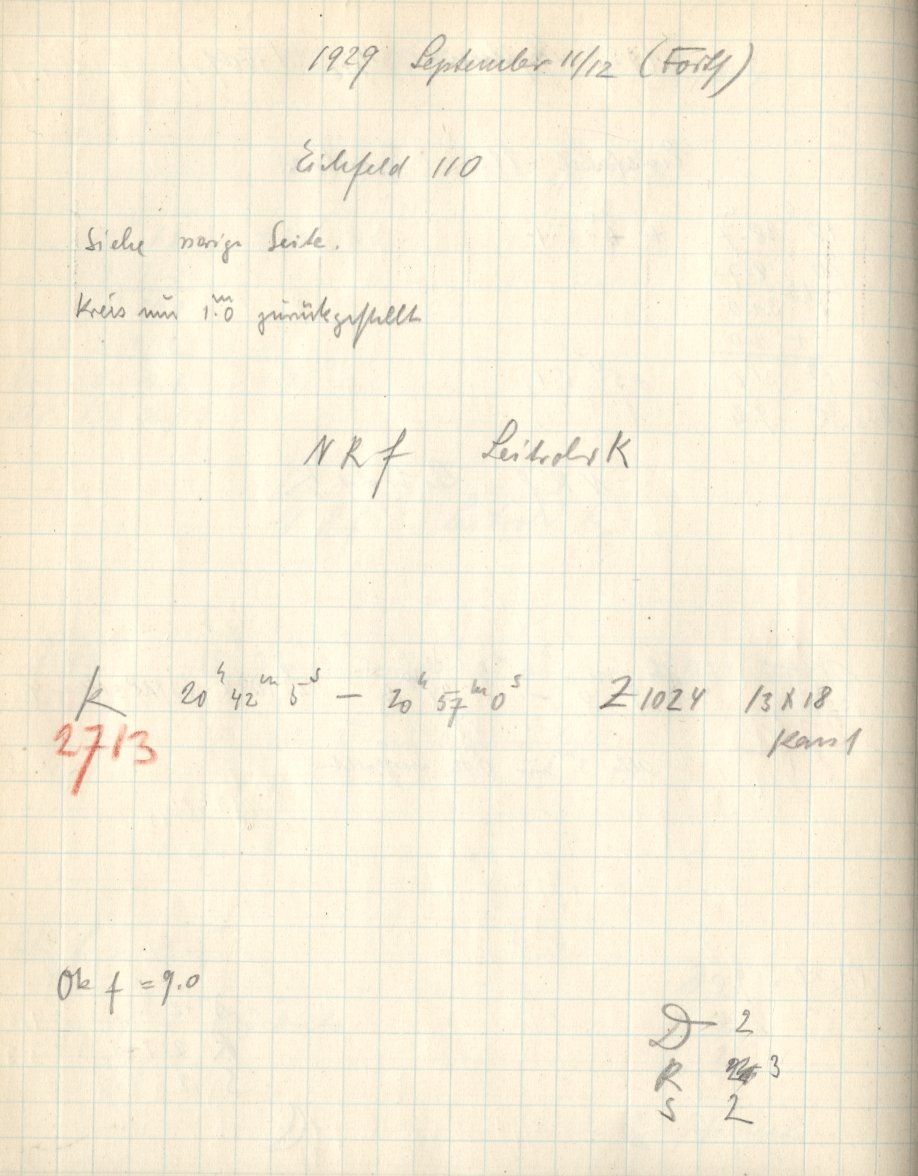 1929 September 11/12 (Forts)
Eichfeld 110
Siehe vorige Seite.
Kreis um 1ᵐ.0 zurückgestellt
NRf Leitrohr K
K 20ʰ 42ᵐ 5ˢ — 20ʰ 57ᵐ 0ˢ Z 1024 13 X 18
2713
Ok f = 9.0
D 2
R 3
S 2